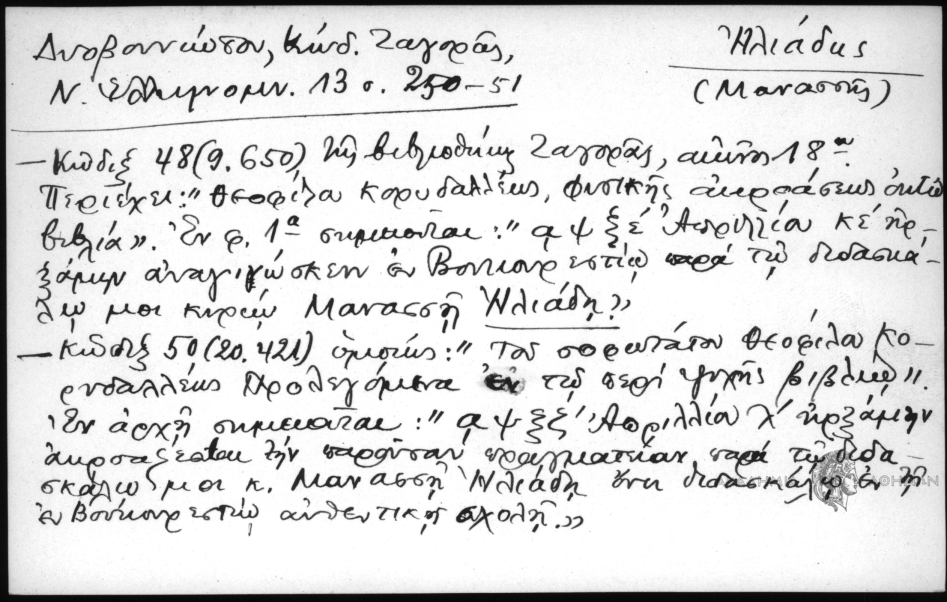 Δυοβουνιώτου, Κώδ. Ζαγορᾶς,
Ν. Ἑλληνομν. 13 σ. 250-51
Ἠλιάδης
(Μανασσῆς)
— Κῶδιξ 48 (9.650) τῆς βιβλιοθήκης Ζαγορᾶς, αἰῶνος 18ου.
Περιέχει: "Θεοφίλου Κορυδαλλέως, φυσικῆς ἀκροάσεως ὀκτὼ
βιβλία". Ἐν φ. 1α σημειοῦται: "αψξέ Ἀπριλλίου κέ ἠρ-
ξάμην ἀναγιγνώσκειν ἐν Βουκουρεστίῳ παρὰ τῷ διδασκά-
λῳ μοι κυρίῳ Μανασσῇ Ἠλιάδῃ"
— Κῶδιξ 50 (20.421) ὁμοίως: "Τοῦ σοφωτάτου Θεοφίλου Κο-
ρυδαλλέως Προλεγόμενα ἐν τῷ περὶ ψυχῆς βιβλίῳ".
Ἐν ἀρχῇ σημειοῦται: "αψξξ́ Ἀπριλλίου λ' ἠρξάμην
ἀκροάζεσθαι τὴν παροῦσαν πραγματείαν παρὰ τῷ διδα-
σκάλῳ μοι κ. Μανασσῇ Ἠλιάδῃ διδασκάλῳ ἐν τῇ
ἐν Βουκουρεστίῳ αὐθεντικῇ σχολῇ."